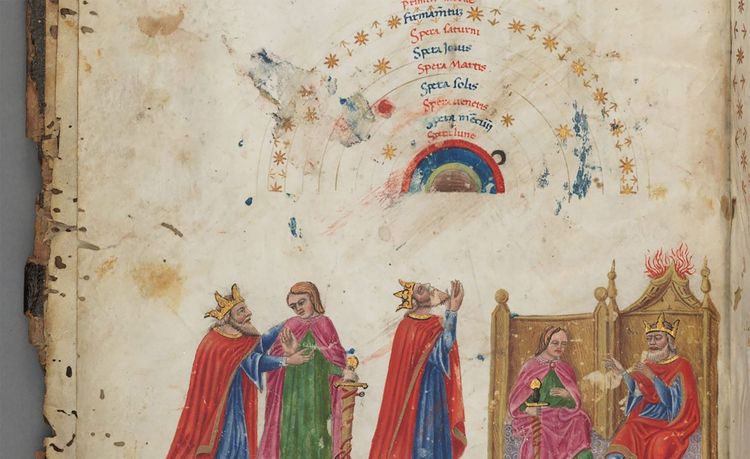 firmamētuz
Spera saturni
Spera Jouis
Spera Martis
Spera solis
Spera ueneris
Spera mercurij
Spera lune